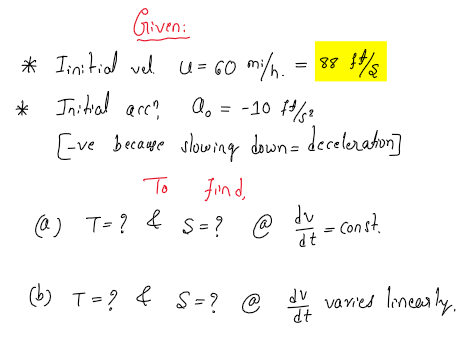 Given:
* Initial vel. u = 60 mi/h. = 88 ft/s
* Initial accⁿ, a₀ = -10 ft/s²
[-ve because slowing down = deceleration]
To find,
(a) T = ? & S = ? @ dv/dt = const.
(b) T = ? & S = ? @ dv/dt varies linearly.